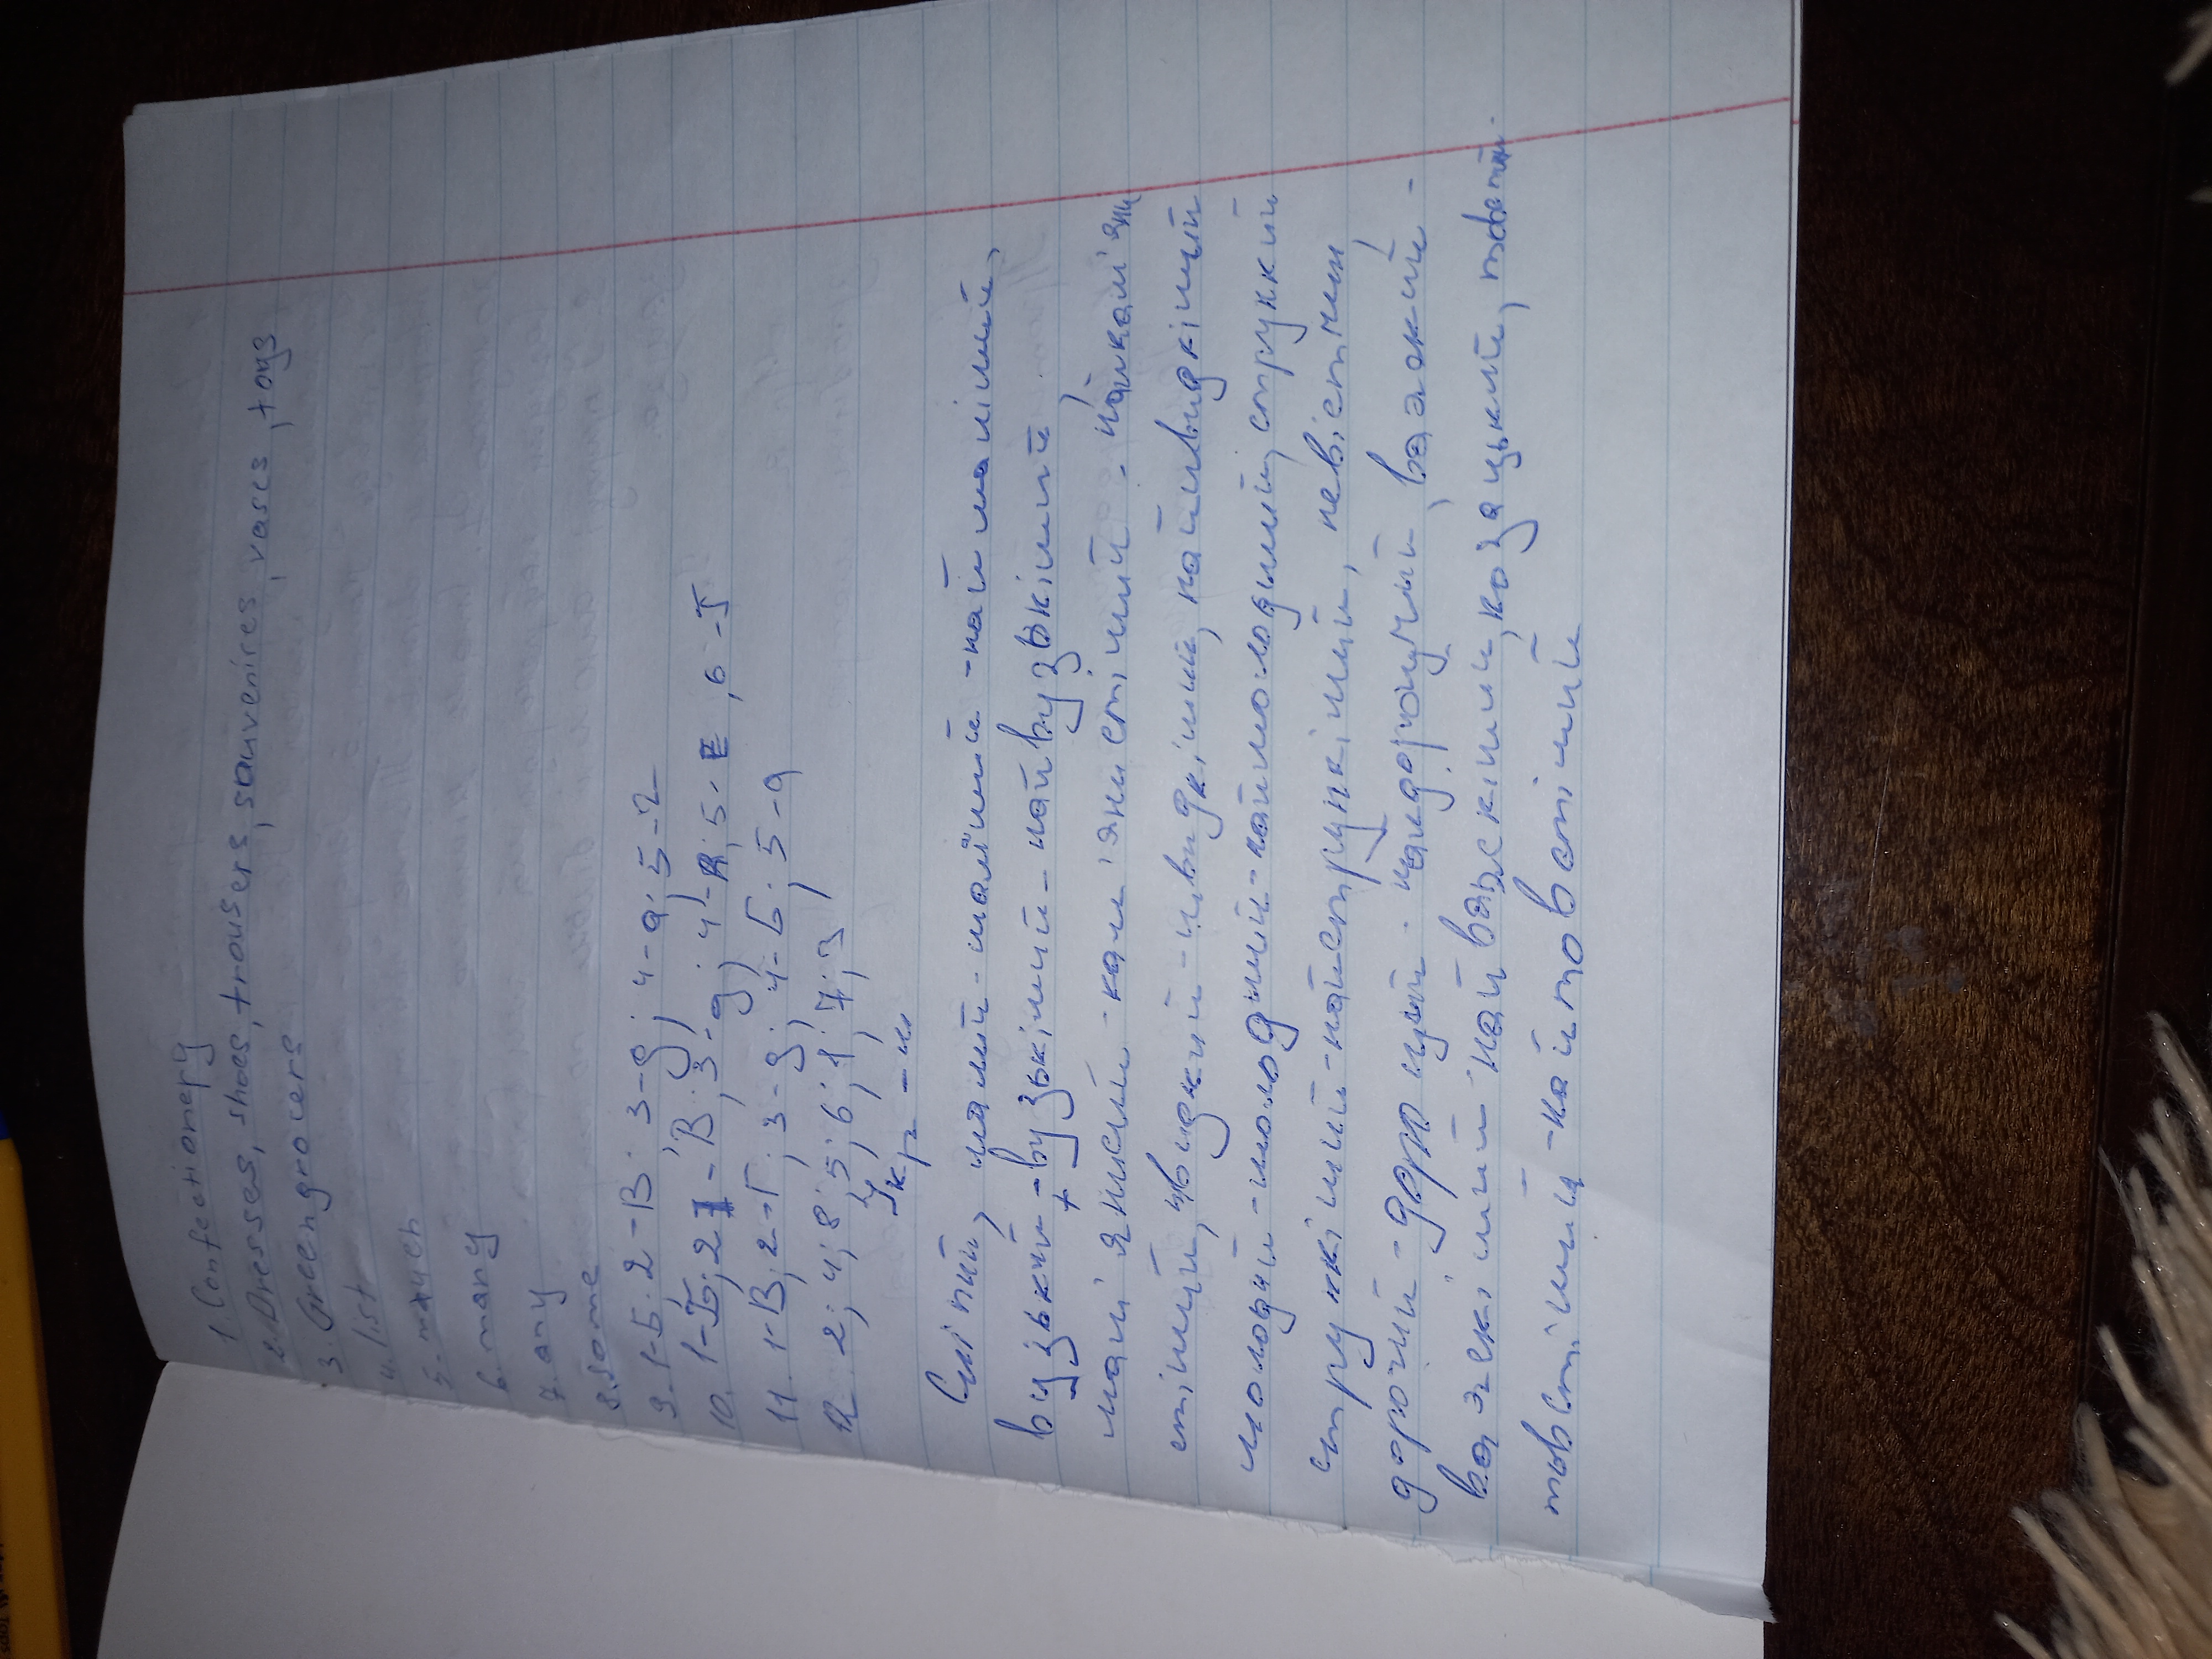 1. Confectionery
2. Dresses, shoes, trousers, sauvenires, vases, toys
3. Greengrocers
4. list
5. much
6. many
7. any
8. some
9. 1-Б; 2-В; 3-д; 4-а; 5-г
10. 1-Б; 2-В; 3-д; 4-А; 5-Е, 6-Г
11. 1-В; 2-Г; 3-д; 4-Б; 5-а
12. 2; 4; 8; 5; 6; 1; 7; 3
Укр - м
Сліпий, малий - мал
вузький - вузькіший - найвузькіший
кам'яністий - кам'яністіший - найкам'яні
стіший, швидкий - швидкіший, найшвидкіший
молодий - молодший - наймолодший, стрункий
стрункіший - найстрункіший, невістчин
дорогий - найдорожчий, важкий -
важкіший найважскіший, козацький, товстий
товстіший - найтовстіший